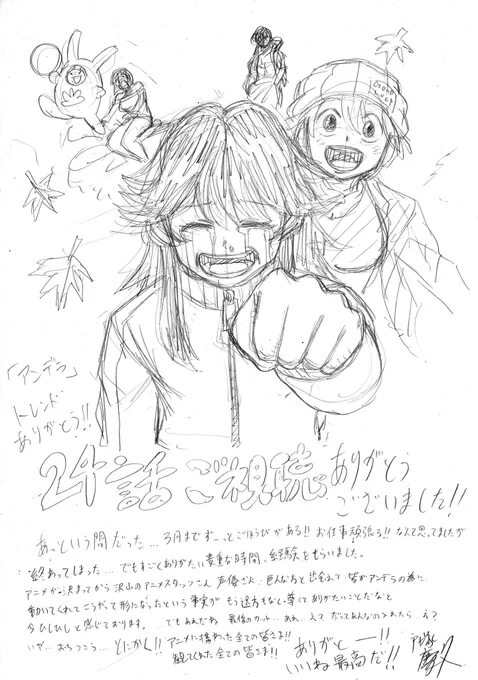 GOOD
LUCK
「アンデラ」
トレンド
ありがとう!!
24話 ご視聴 ありがとう
ございました!!
あっという間だった… 3月までずーっとごほうびがある!! お仕事頑張る!! なんて思ってましたが
終わってしまった… でもすごくありがたい貴重な時間、経験をもらいました。
アニメが決まってから沢山のアニメスタッフさん 声優さん、色んな方と出会えて 皆がアンデラの為に
動いてくれてこうがって形になったという事実が もう途方もなく尊くてありがたいことだなと
今ひしひしと感じております。 でもあれだね 最後のカット…あれ…え? だってあんなの入れたら…え?
いや…おちつこう… とにかく!! アニメに携わった全ての皆さま!!
観てくれた全ての皆さま!! ありがとー!!
いいね最高だ!!